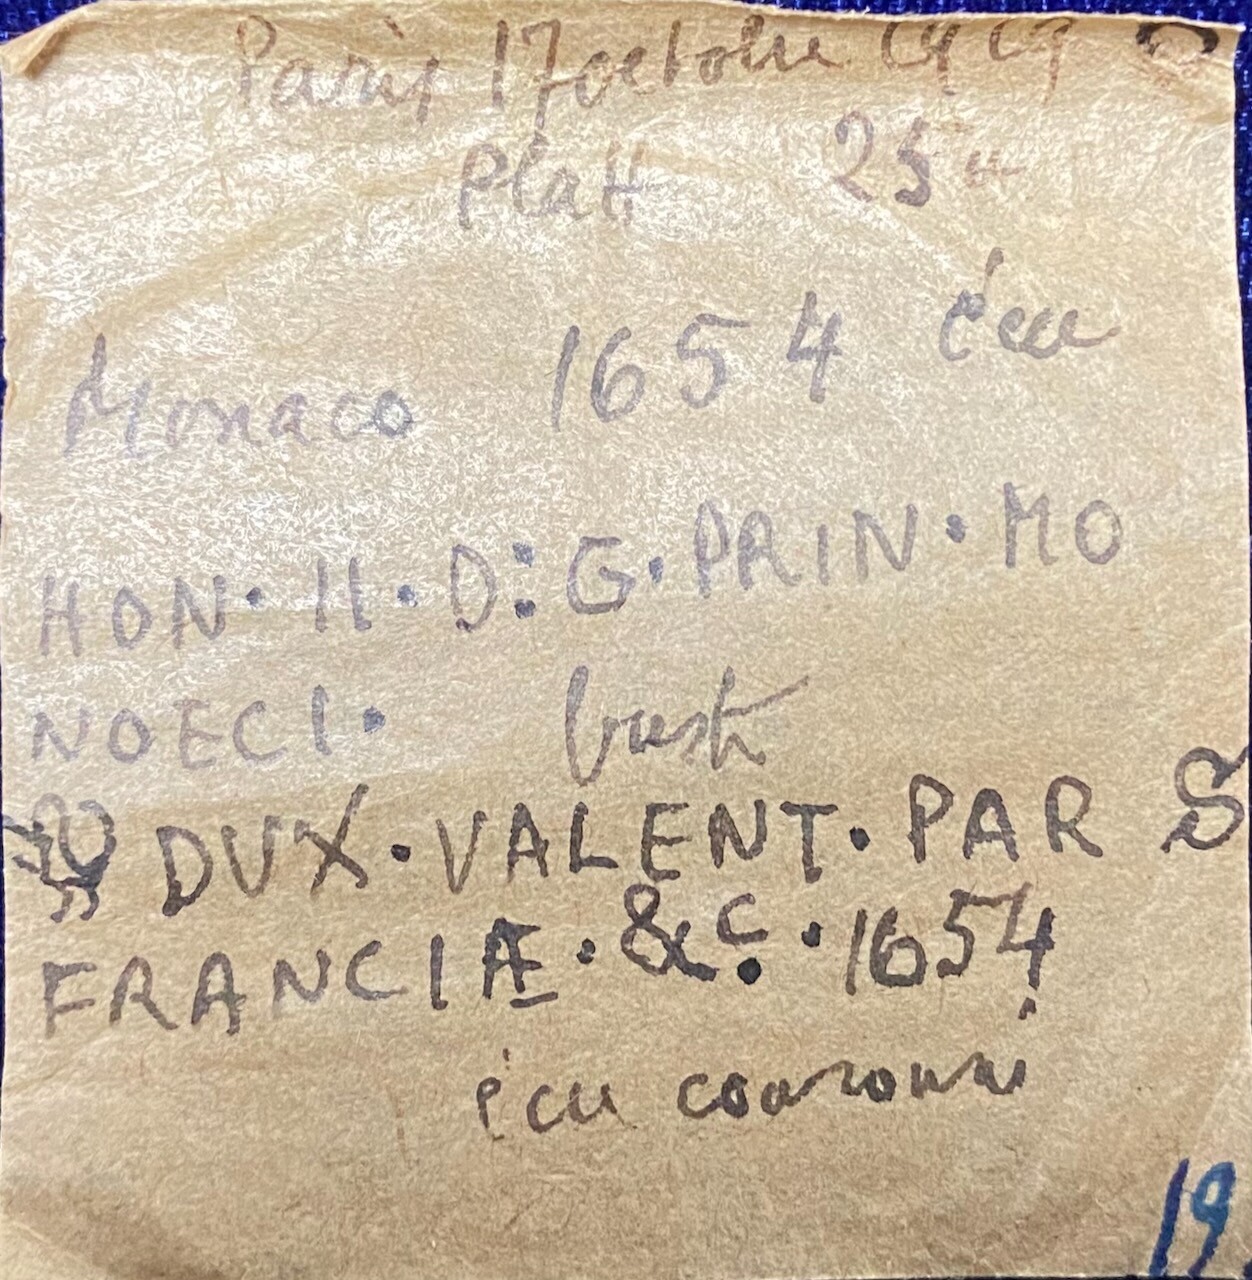 Paris 17 octobre 1919
Platt 25
Monaco 1654 écu
HON. II. D: G. PRIN. MO
NOECI. buste
DUX. VALENT. PAR S
FRANCIÆ. &c. 1654
écu couronné
19